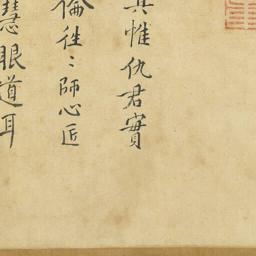 其惟仇君實
倫徃〻師心匠
慧眼道耳